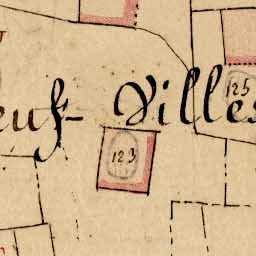 125
euf-Villes
123